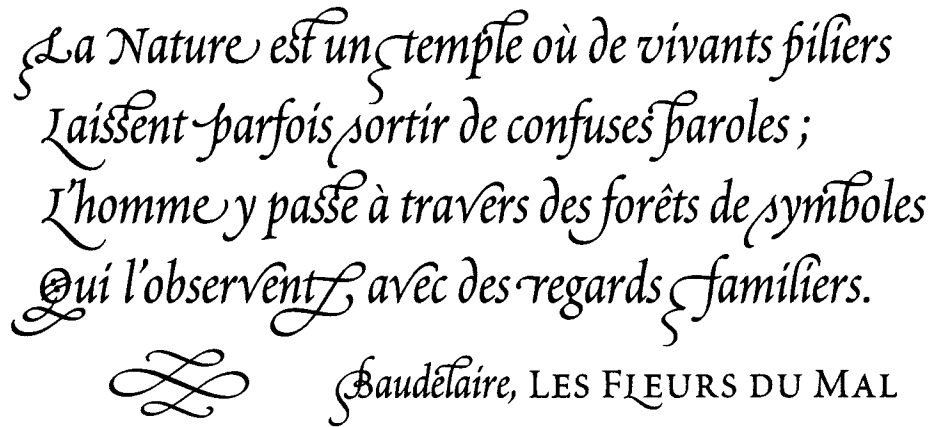 La Nature est un temple où de vivants piliers
Laissent parfois sortir de confuses paroles ;
L'homme y passe à travers des forêts de symboles
Qui l'observent, avec des regards familiers.
Baudelaire, LES FLEURS DU MAL